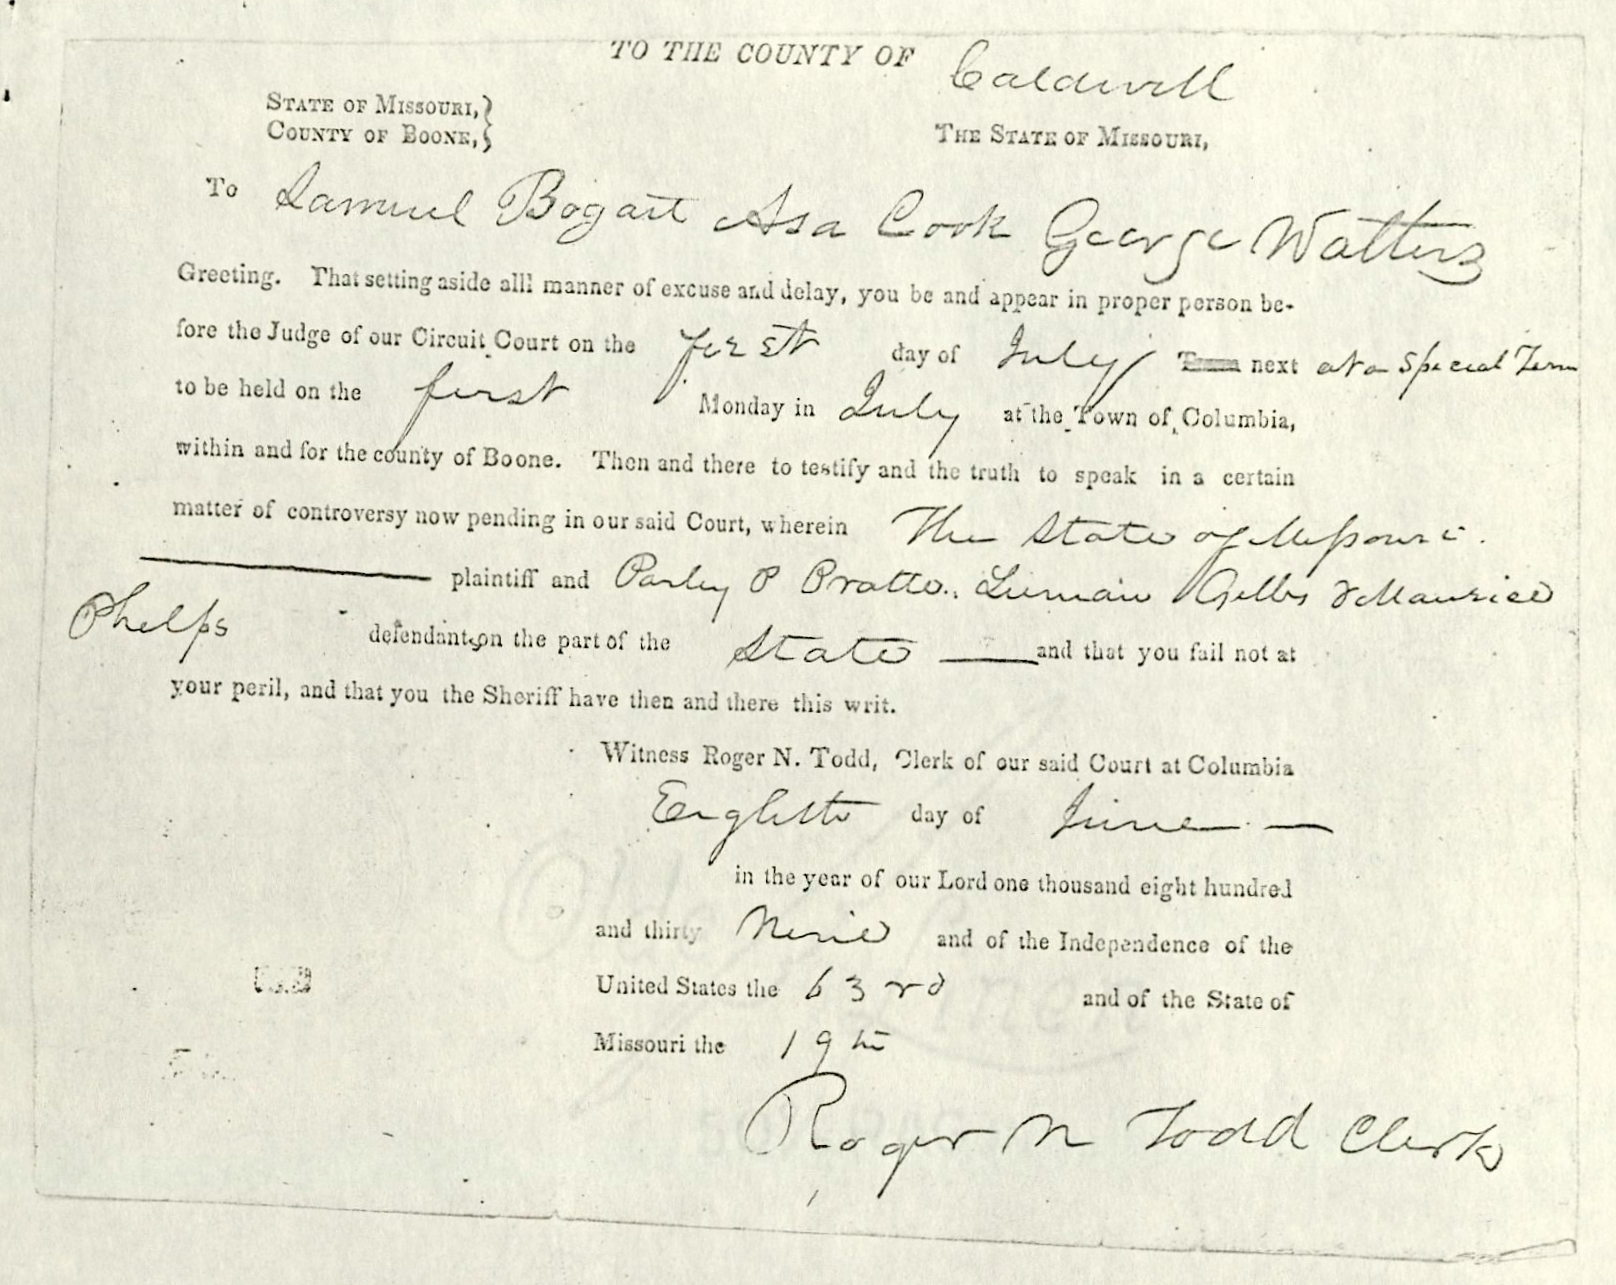 TO THE COUNTY OF Caldwell
STATE OF MISSOURI,}
COUNTY OF BOONE,}
THE STATE OF MISSOURI,
To Samuel Bogart Asa Cook George Walters
Greeting. That setting aside alll manner of excuse and delay, you be and appear in proper person be-
fore the Judge of our Circuit Court on the first day of July next at a Special Term
to be held on the first Monday in July at the Town of Columbia,
within and for the county of Boone. Then and there to testify and the truth to speak in a certain
matter of controversy now pending in our said Court, wherein The State of Missouri.
plaintiff and Parley P Pratt Luman & Maurice
Phelps defendants on the part of the State and that you fail not at
your peril, and that you the Sheriff have then and there this writ.
Witness Roger N. Todd, Clerk of our said Court at Columbia
Eighth day of June
in the year of our Lord one thousand eight hundred
and thirty Nine and of the Independence of the
United States the 63rd and of the State of
Missouri the 19th
Roger N Todd Clerk